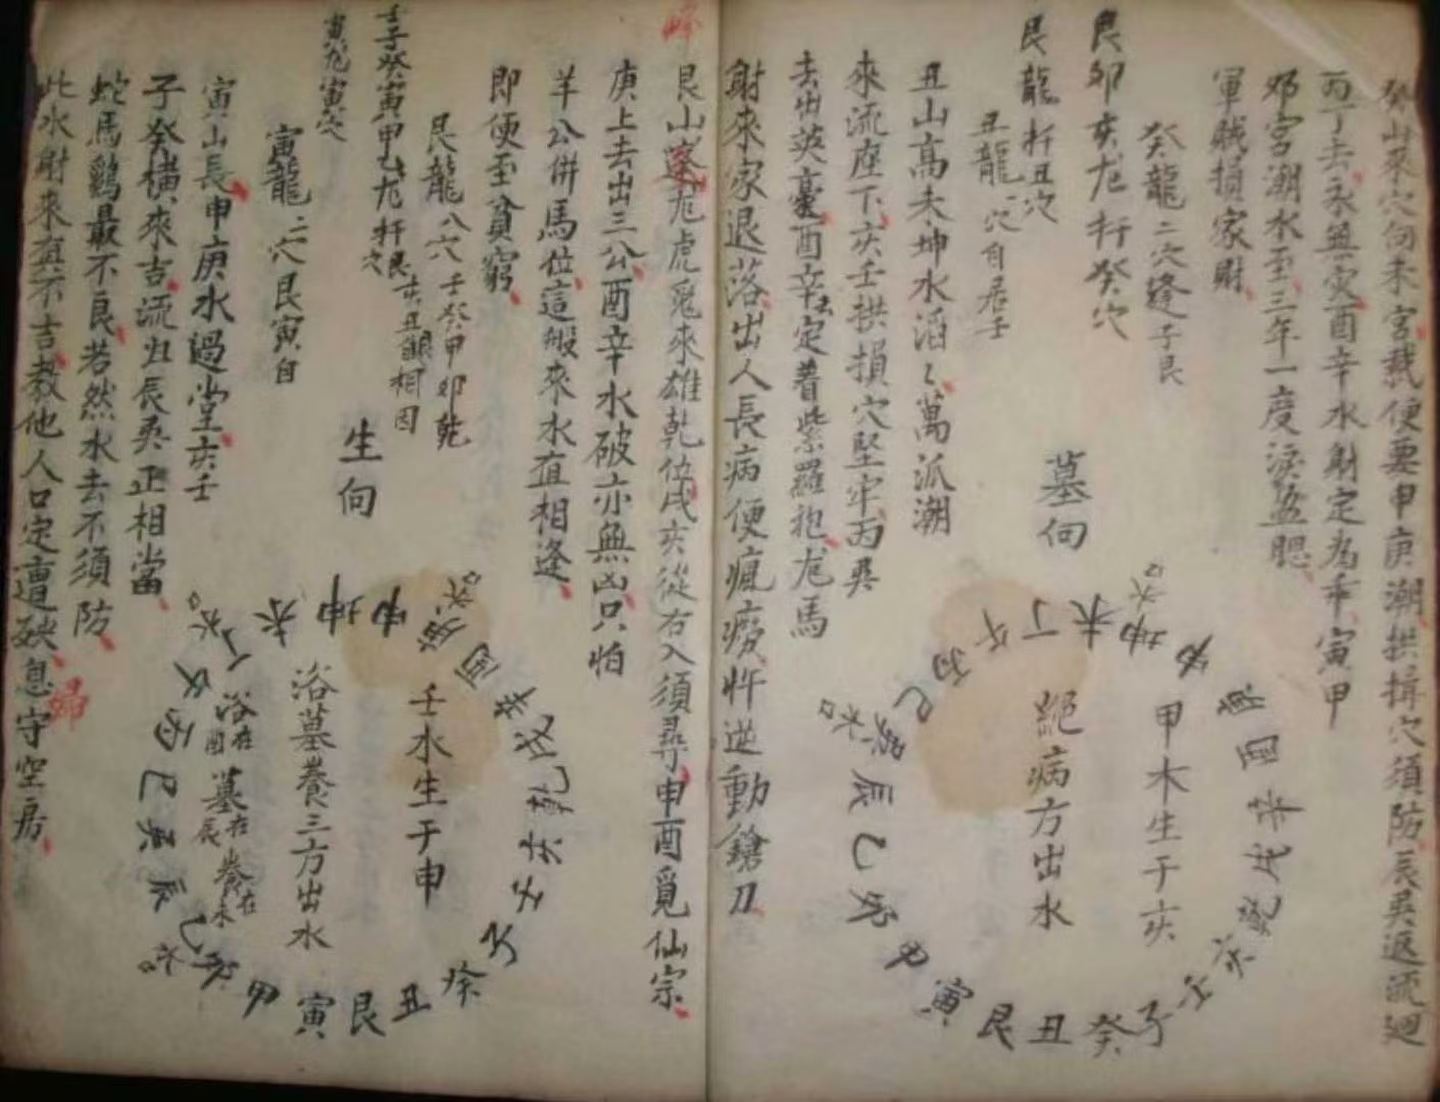 癸山來穴向未宮裁便要申庚潮拱揖穴須防辰巽返流廻
丙丁去永無灾酉辛水射定為乖寅甲
邜宮潮水至三年一度淚盈腮
軍賊損家財
癸龍二穴縫子艮
艮邜亥龙扦癸穴
艮龍扦丑穴
丑龍一穴自居子
丑山高未坤水滔々萬派潮
來流座下亥壬拱損穴堅牢丙巽
去出英豪酉辛去定着紫羅袍龙馬
射來家退落出人長病便瘋癆忤逆動鎗刀
墓向
甲木生于亥
絕病方出水
午丁未坤申庚酉辛戌乾亥壬子癸丑艮寅甲卯乙辰巽巳丙
水口
水口
峰
艮山蓬龙虎兎來雄乾位戌亥從右入須尋申酉覓仙宗
庚上去出三公酉辛水破亦無凶只怕
羊公併馬位這般來水直相逢
即便至貧窮
艮龍八穴壬癸甲邜乾
亥丑艱相因
壬子癸寅甲乙龙扦艮穴
寅龙寅穴
寅龍二穴艮寅自
寅山長申庚水過堂亥壬
子癸橫來吉流丑辰巽正相當
蛇馬鷄最不良若然水去不須防
此水射來直不吉教他人口定遭殃息守空房
婦
生向
壬水生于申
浴墓養三方出水
浴在酉
墓在辰
養在未
未坤申庚酉辛戌乾亥壬子癸丑艮寅甲卯乙辰巽巳丙午丁
水口
水口
水口